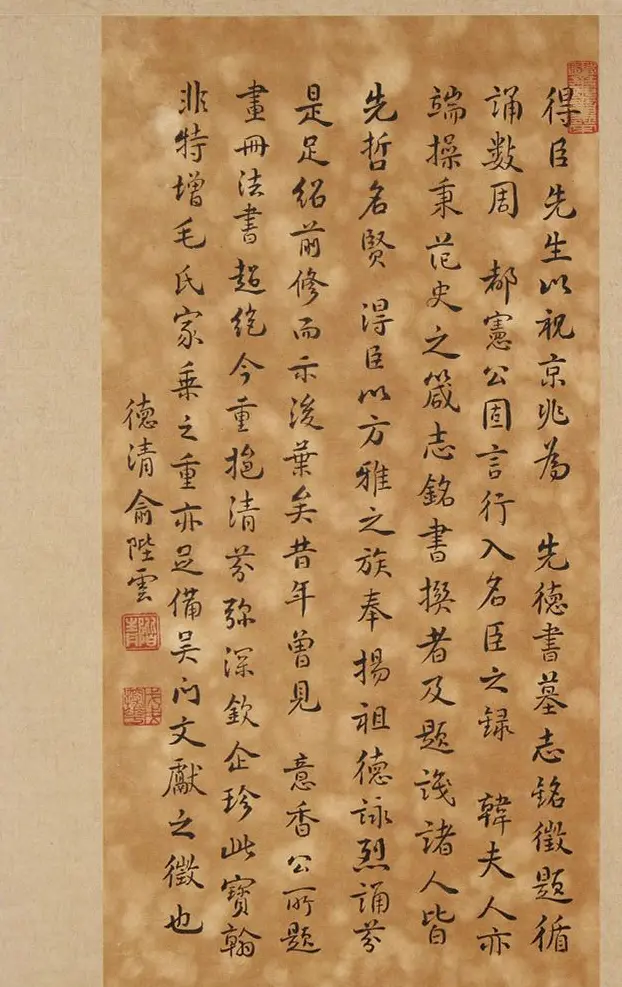 得臣先生以祝京兆為　先德書墓志銘徵題循
誦數周　都憲公固言行入名臣之録　韓夫人亦
端操秉范史之箴志銘書撰者及題識諸人皆
先哲名賢　得臣以方雅之族奉揚祖德詠烈誦芬
是足紹前修而示後葉矣昔年曾見　意香公所題
畫冊法書超絶今重挹清芬弥深欽企珍此寶翰
非特增毛氏家乘之重亦足備吳门文獻之徵也
德清俞陛雲